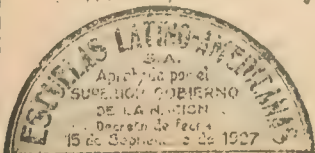 ESCUELAS LATINO-AMERICANAS
S.A.
Aprobada por el
SUPERIOR GOBIERNO
DE LA NACION
Decreto de Fecha
15 de Septiembre de 1927